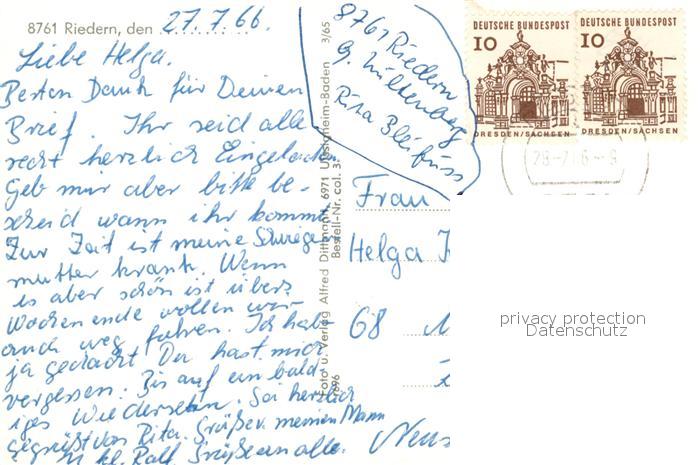 8761 Riedern, den 27.7.66.
Liebe Helga.
Besten Dank für Deinen
Brief. Ihr seid alle
recht herzlich Eingeladen
Geb mir aber bitte be-
scheid wann ihr kommt
Zur Zeit ist meine Schwieger
mutter krank. Wenn
es aber schön ist übers
Wochenende wollen wir
auch weg fahren. Ich hab
ja gedacht Du hast mich
vergessen. Bis auf ein bald-
iges Wiedersehn. Sei herzlich
gegrüßt von Rita. Grüße v. meinem Mann
u. kl. Ralf. Grüße an alle.
3/65
Foto u. Verlag Alfred Dittmann, 6971 Uissigheim-Baden
Bestell-Nr. col. 3
8761 Riedern
b. Miltenberg
Rita Bleifuss
DEUTSCHE BUNDESPOST
10
DRESDEN/SACHSEN
DEUTSCHE BUNDESPOST
10
DRESDEN/SACHSEN
Frau
Helga
68
privacy protection
Datenschutz